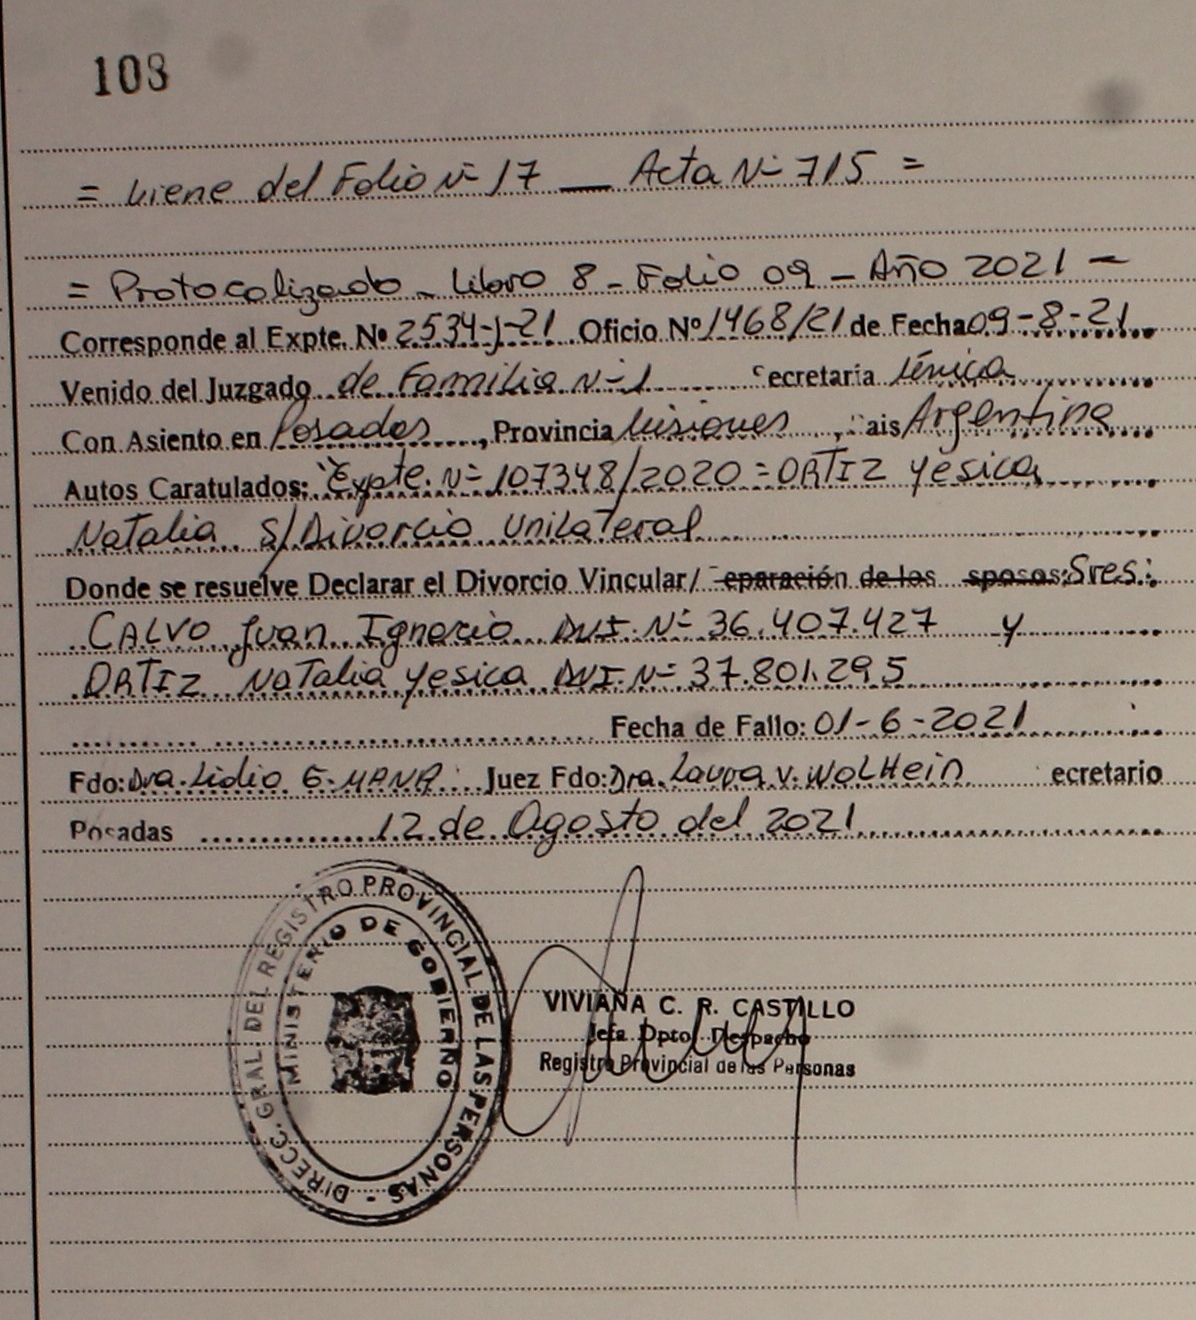 108
= viene del Folio Nº 17 — Acta Nº 715 =
= Protocolizado - Libro 8 - Folio 09 - Año 2021 -
Corresponde al Expte. Nº 2534-J-21 Oficio Nº 1468/21 de Fecha 09-8-21
Venido del Juzgado de Familia Nº 1 ecretaria Única
Con Asiento en Posadas, Provincia Misiones, ais Argentina
Autos Caratulados: "Expte. Nº 107348/2020 = ORTIZ Yesica
Natalia S/Divorcio Unilateral
Donde se resuelve Declarar el Divorcio Vincular/ eparación de los sposos: Sres.:
CALVO Juan Ignacio DNI. Nº 36.407.427 y
ORTIZ Natalia Yesica DNI. Nº 37.801.295
Fecha de Fallo: 01-6-2021
Fdo: Dra. Lidia E. MANA Juez Fdo: Dra. Laura V. WOLHEIN ecretario
Posadas 12 de Agosto del 2021
DIRECC. GRAL. DEL REGISTRO PROVINCIAL DE LAS PERSONAS -
MINISTERIO DE GOBIERNO
VIVIANA C. R. CASTILLO
Jefa Dpto. Despacho
Registro Provincial de las Personas